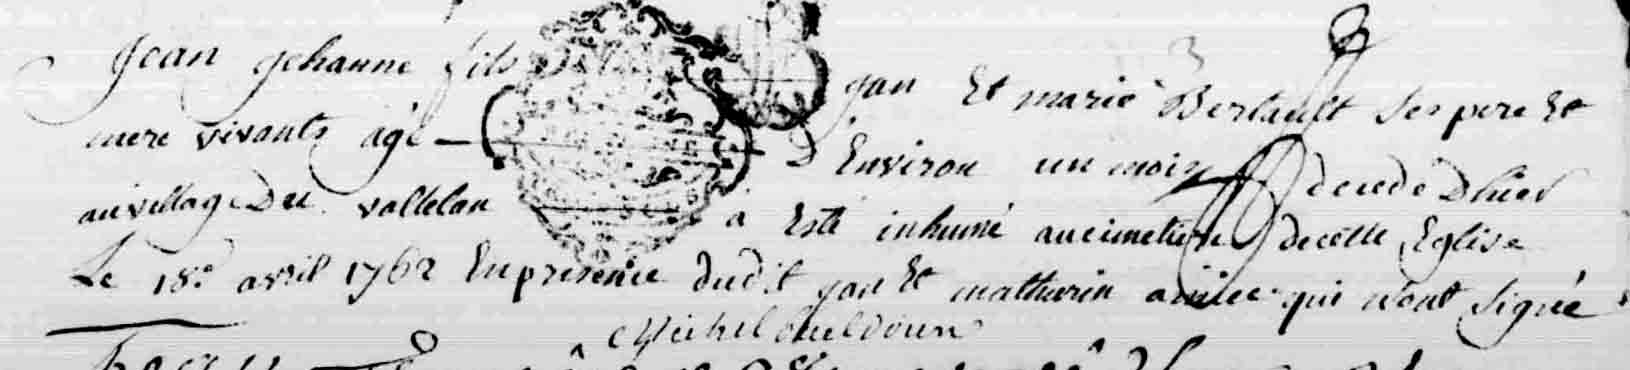 Jean gehanne fils gan Et marie Bertault ses pere Et
mere vivants agé D Environ un mois decede Dhier
au village Du vallelan a Esté inhumé au cimetiere de cette Eglise
Le 18e avril 1762 En presence dudit gan Et mathurin qui n'ont signé
Michel